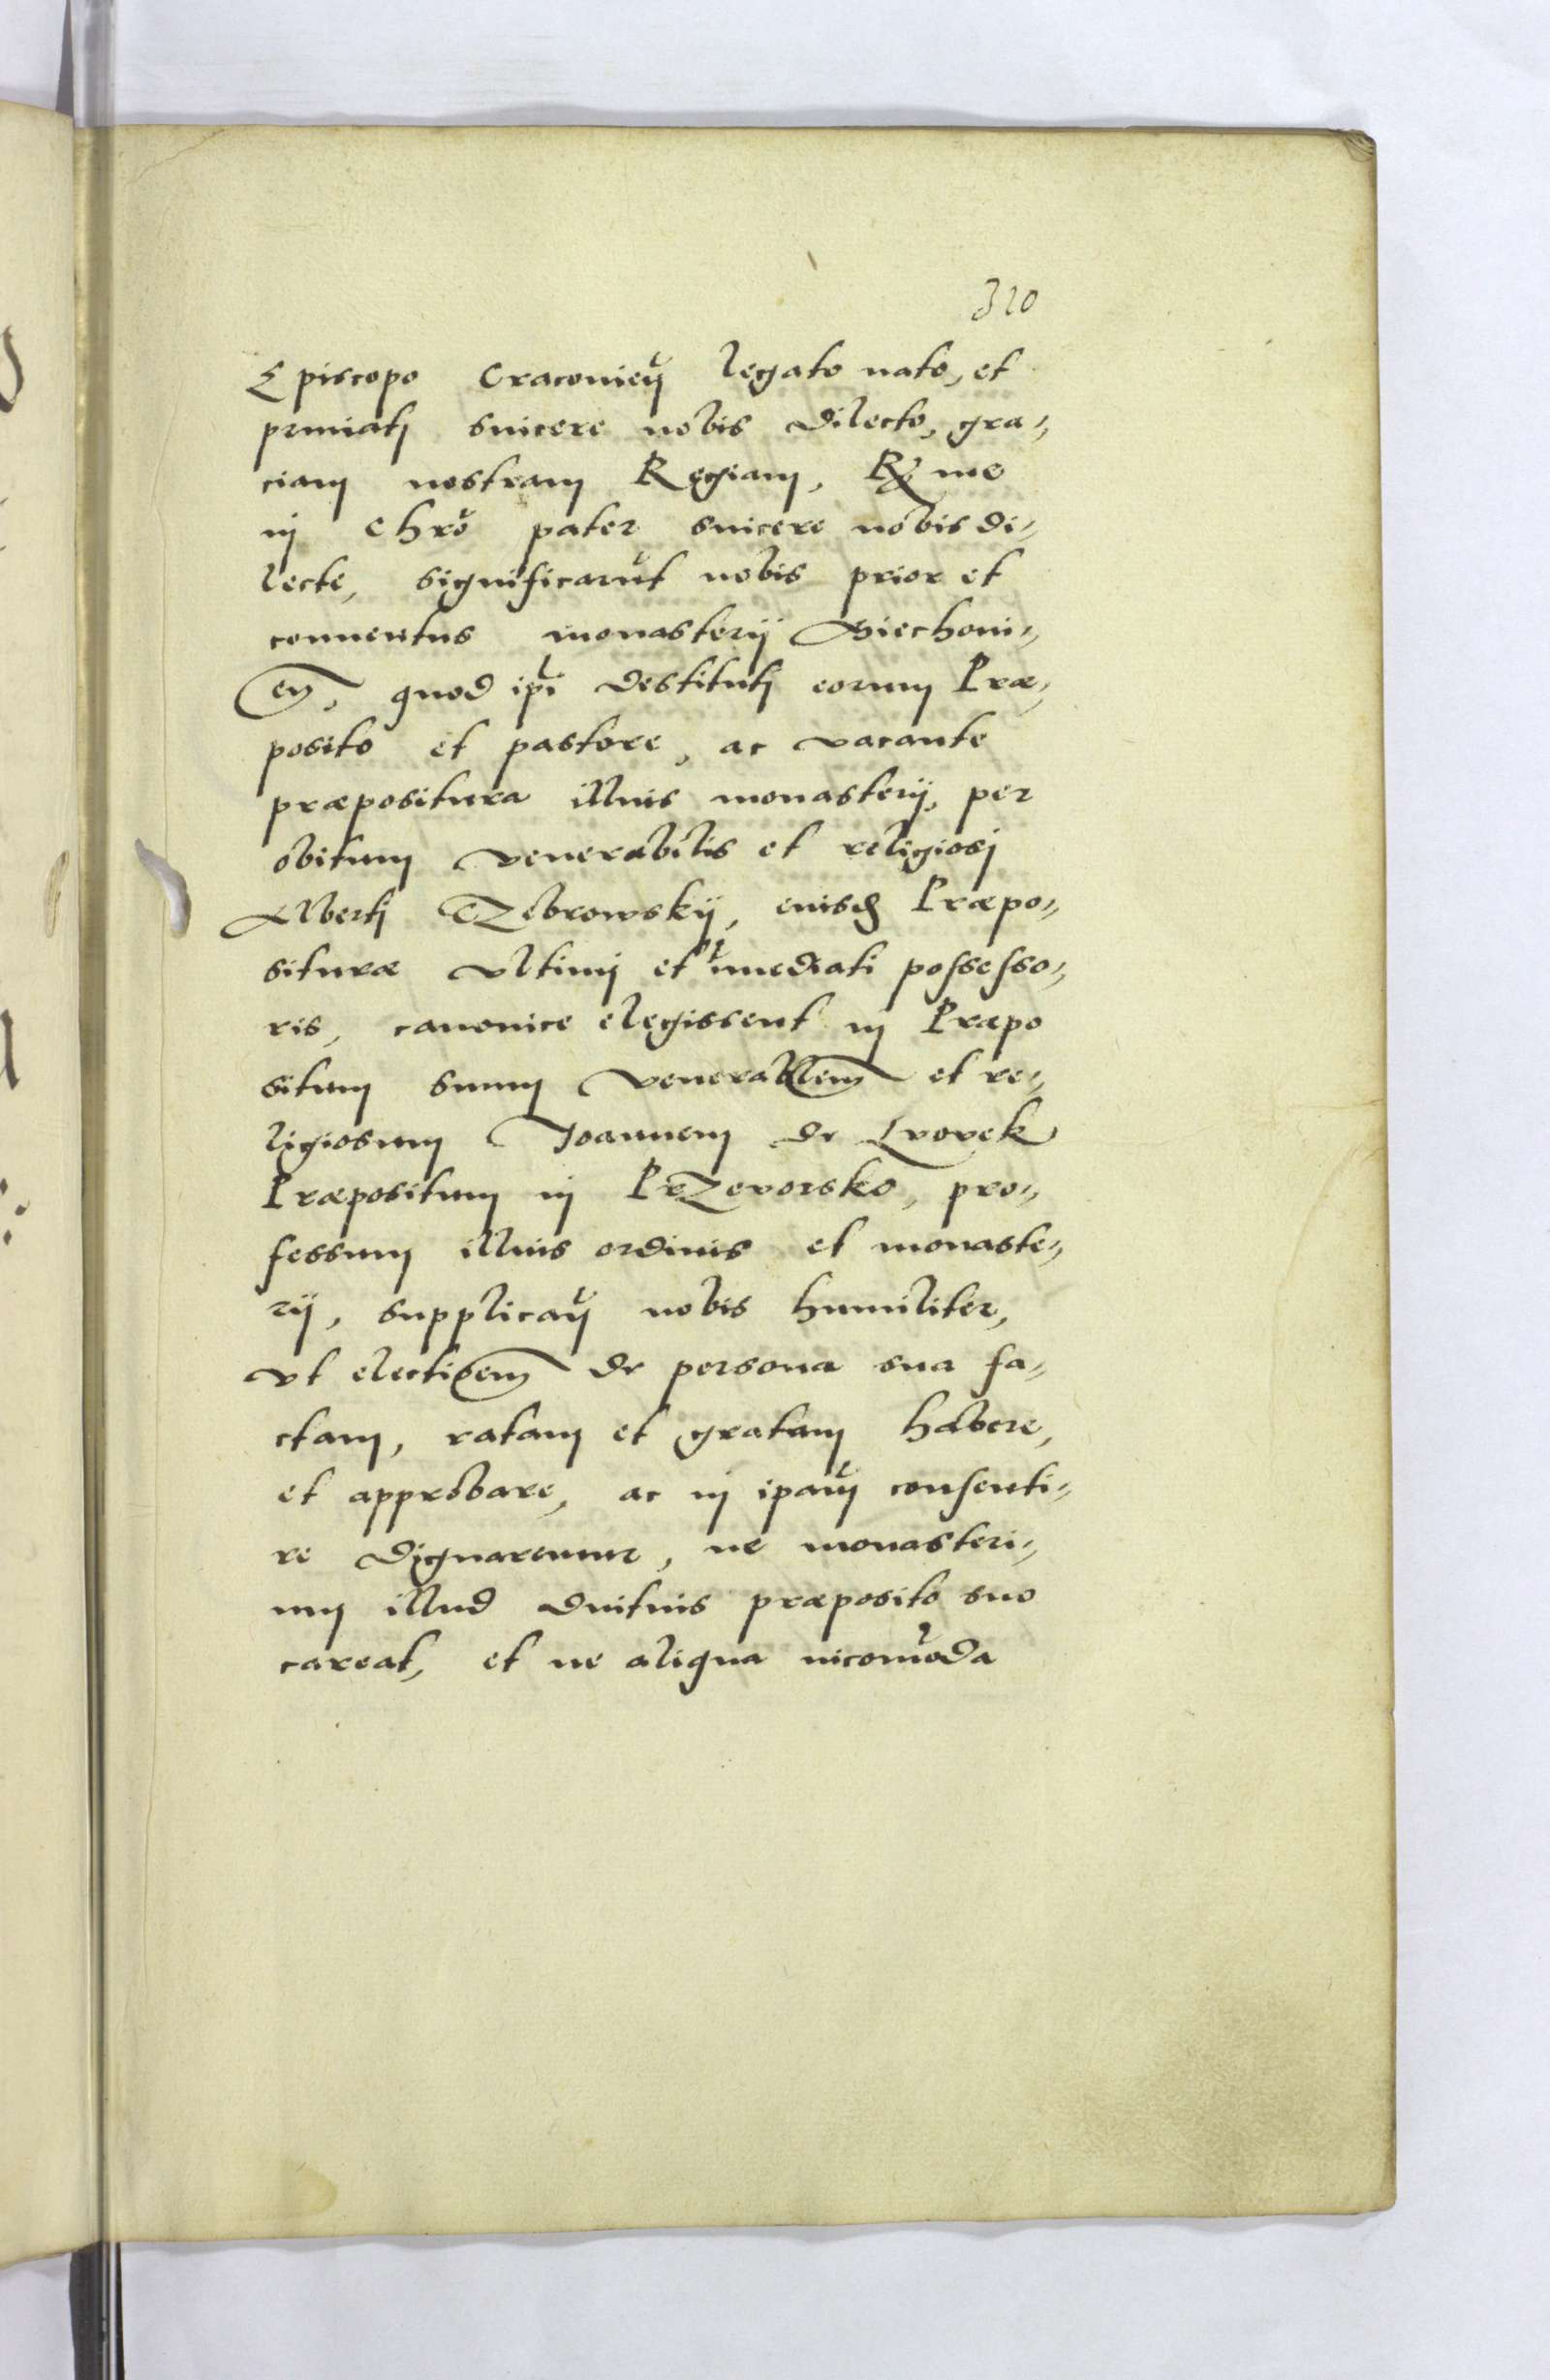 320
Episcopo Cracovień legato nato, et
primati sincere nobis dilecto, gra„
ciam nostram Regiam, Rme
in Chrō pater sincere nobis di„
lecte, significarūt nobis prior et
conventus monasterij Miechovi„
eñ, quod ipi destituti eorum Præ„
posito et pastore, ac vacante
præpositura illius monasterij, per
obitum venerabilis et religiosi
Alberti Zebrowskij, eiusd Præpo„
situræ ultimi et imediati possesso„
ris, canonice elegissent in Præpo
situm suum venerablem et re„
ligiosum Joannem de Lvovek
Præpositum in PrZevorsko, pro„
fessum illius ordinis et monaste„
rij, supplicań nobis humiliter,
ut electioem de persona sua fa„
ctam, ratam et gratam habere,
et approbare, ac in ipam consenti„
re dignaremur, ne monasteri„
um illud diutius præposito suo
careat, et ne aliqua incomoda